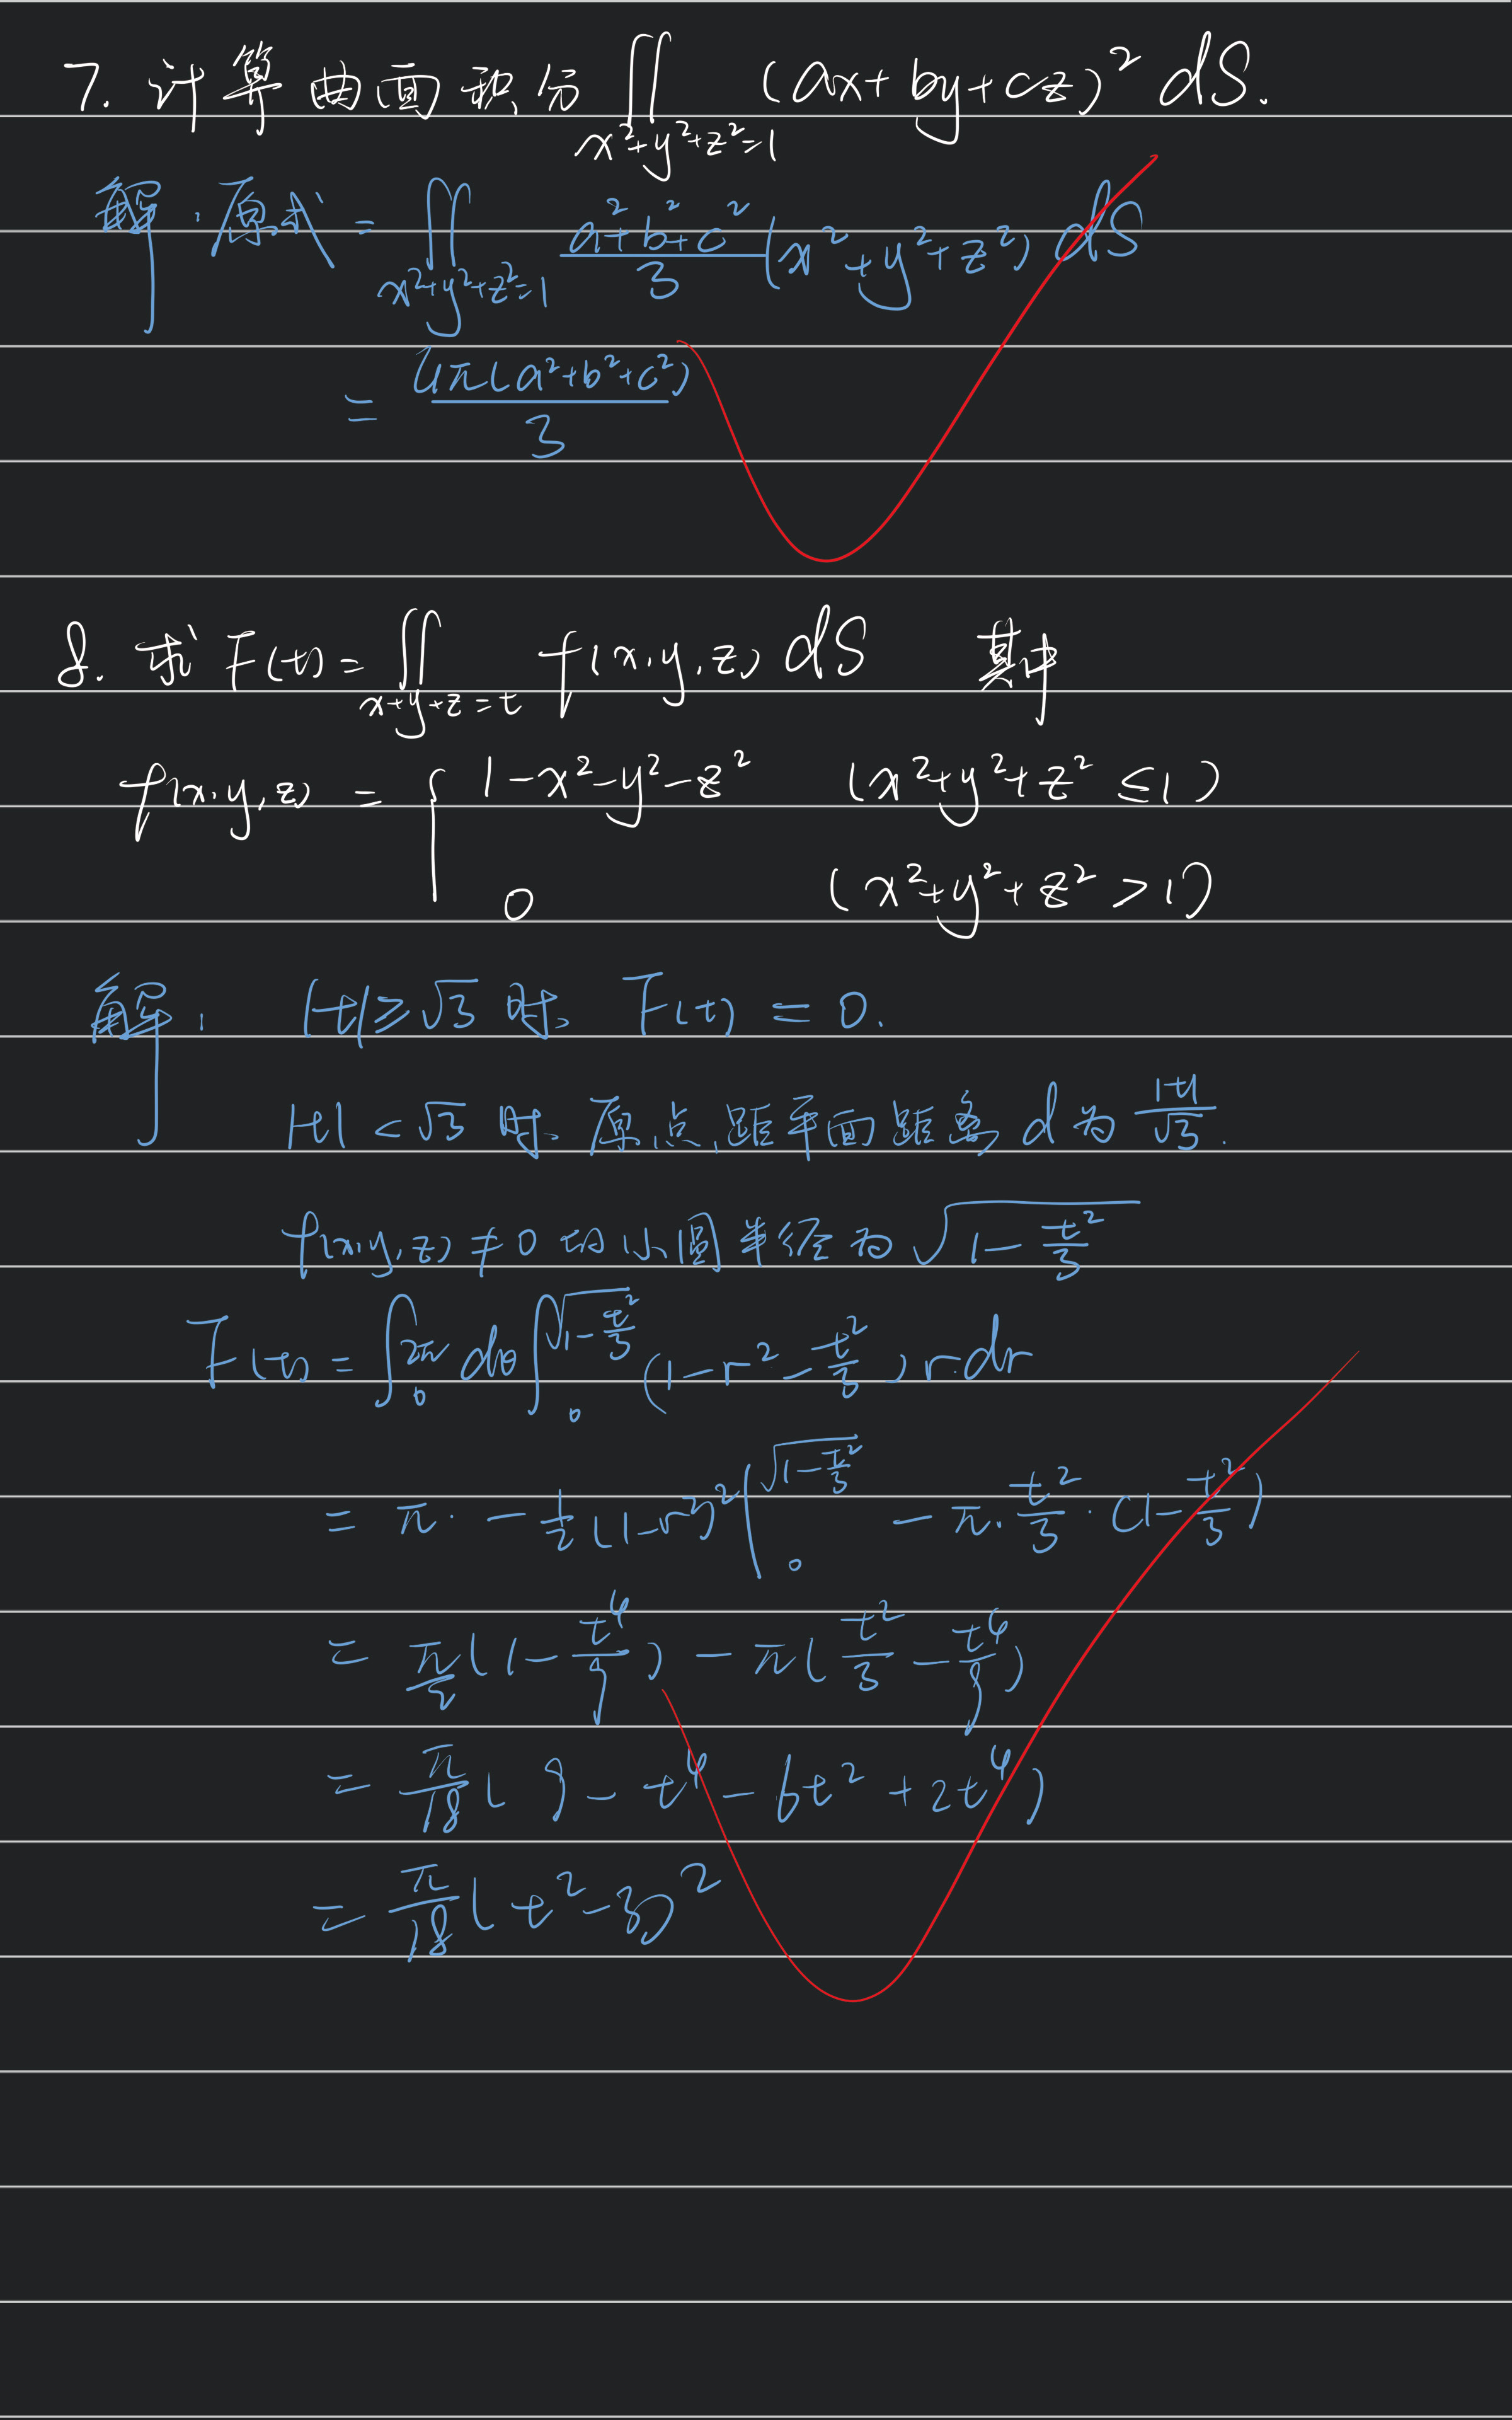 7. 计算曲面积分 ∬_{x²+y²+z²=1} (ax+by+cz)² dS.
解: 原式 = ∬_{x²+y²+z²=1} \frac{a²+b²+c²}{3}(x²+y²+z²) dS
= \frac{4π(a²+b²+c²)}{3}
8. 求 F(t) = ∬_{x+y+z=t} f(x,y,z) dS 其中
f(x,y,z) = { 1-x²-y²-z² (x²+y²+z² ≤1)
0 (x²+y²+z² >1)
解: |t|≥√3 时, F(t) = 0.
|t| <√3 时, 原点距平面距离 d 为 \frac{|t|}{√3}.
f(x,y,z)≠0 的小圆半径为 \sqrt{1-\frac{t²}{3}}
F(t) = ∫_0^{2π} dθ ∫_0^{\sqrt{1-\frac{t²}{3}}} (1-r²-\frac{t²}{3}) r·dr
= π· -\frac{1}{2}(1-r²)² |_0^{\sqrt{1-\frac{t²}{3}}} - π·\frac{t²}{3}·(1-\frac{t²}{3})
= \frac{π}{2}(1-\frac{t⁴}{9}) - π(\frac{t²}{3}-\frac{t⁴}{9})
= \frac{π}{18}(9-t⁴-6t²+2t⁴)
= \frac{π}{18}(t²-3)²